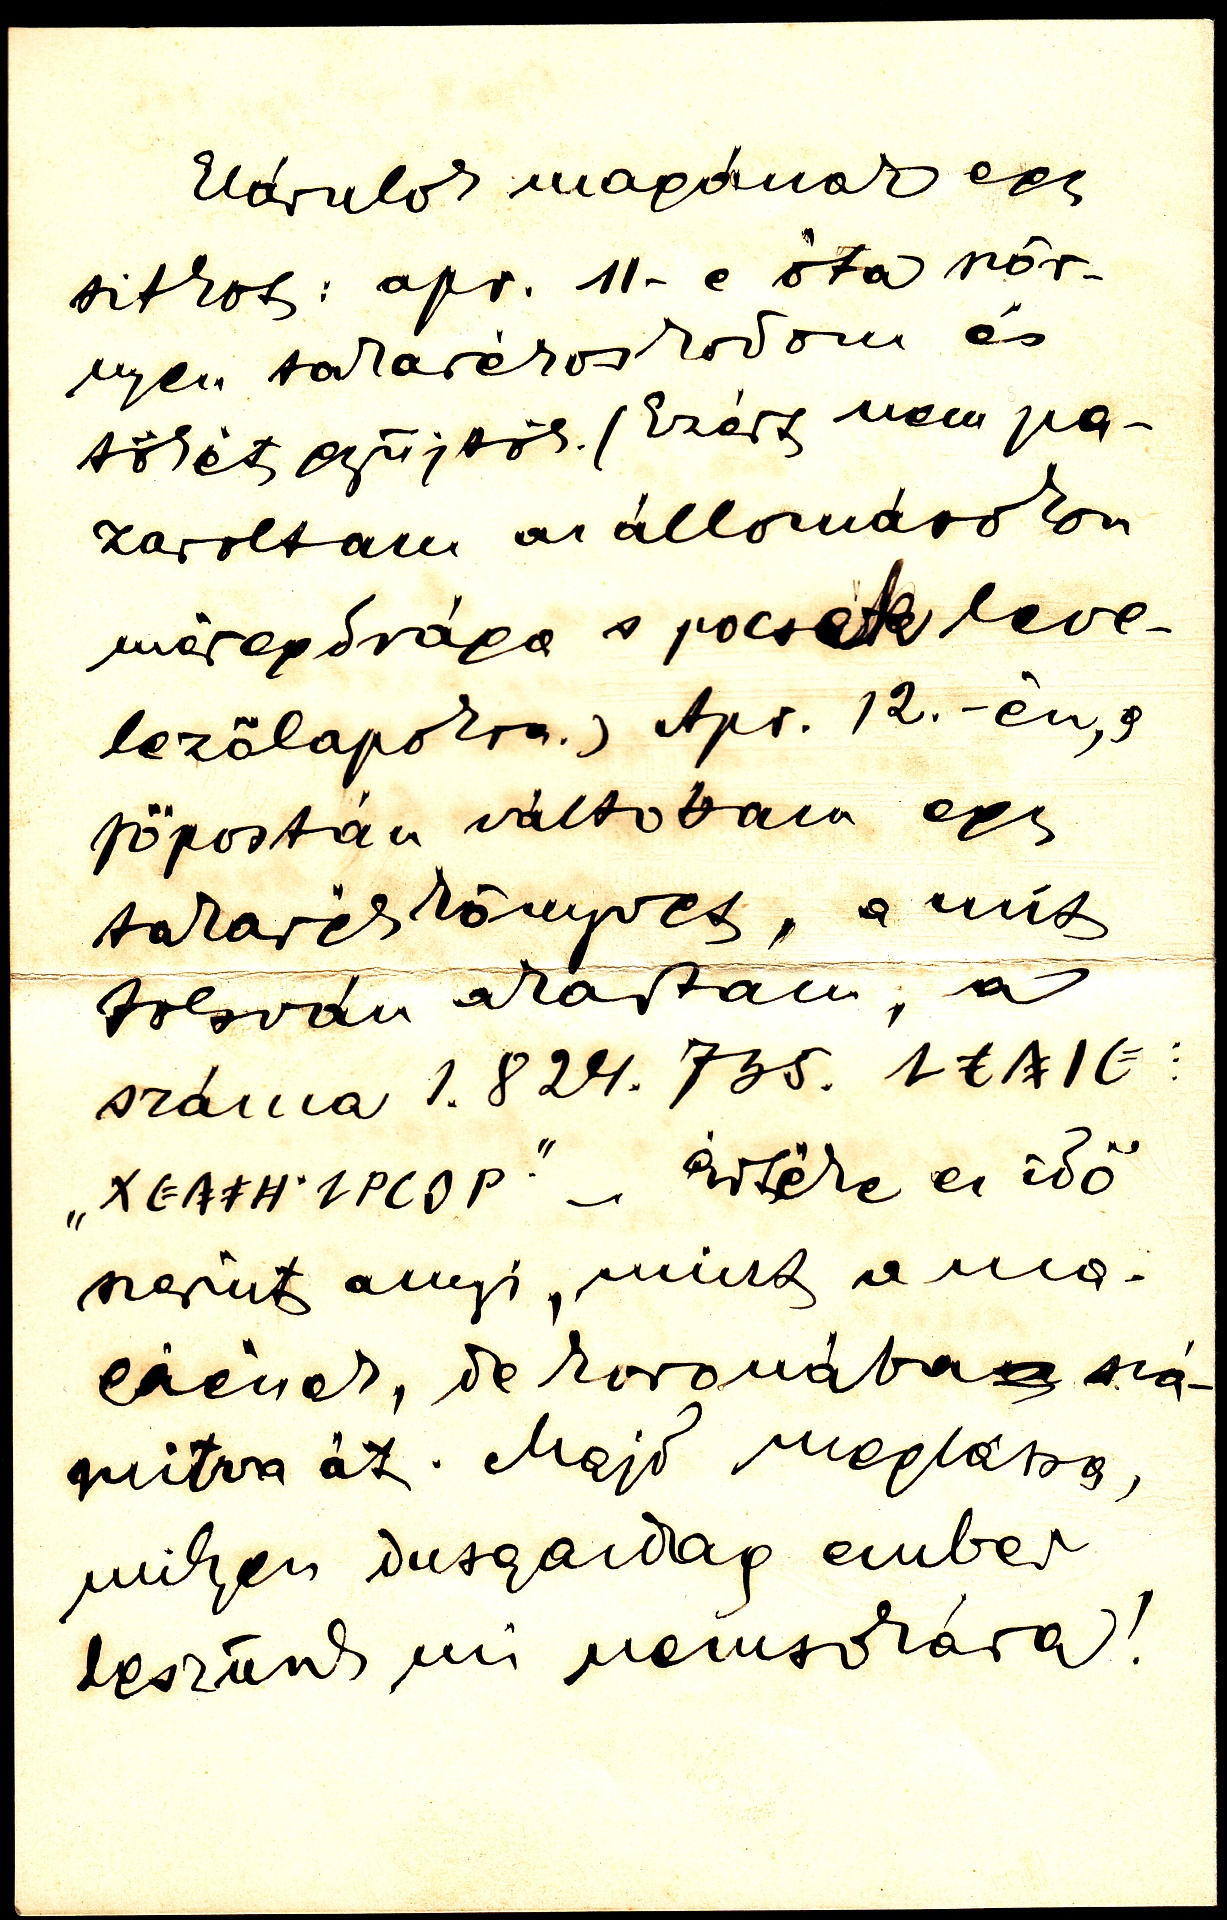 Elárulok magának egy
titkot: apr. 11-e óta ször-
nyen takarékoskodom és
tőkét gyűjtök. (Ezért nem pa-
zaroltam az állomásokon
méregdrága s pocsék leve-
lezőlapokra.) Apr. 12.-én, a
főpostán váltottam egy
takarékkönyvet, a mit
tolsván akartam, a
száma 1.824.735.
értéke ez idő
szerint annyi, mint a ma-
gáénak, de koronában szá-
mitva át. Majd meglássa,
milyen dusgazdag ember
leszünk mi nemsokára!